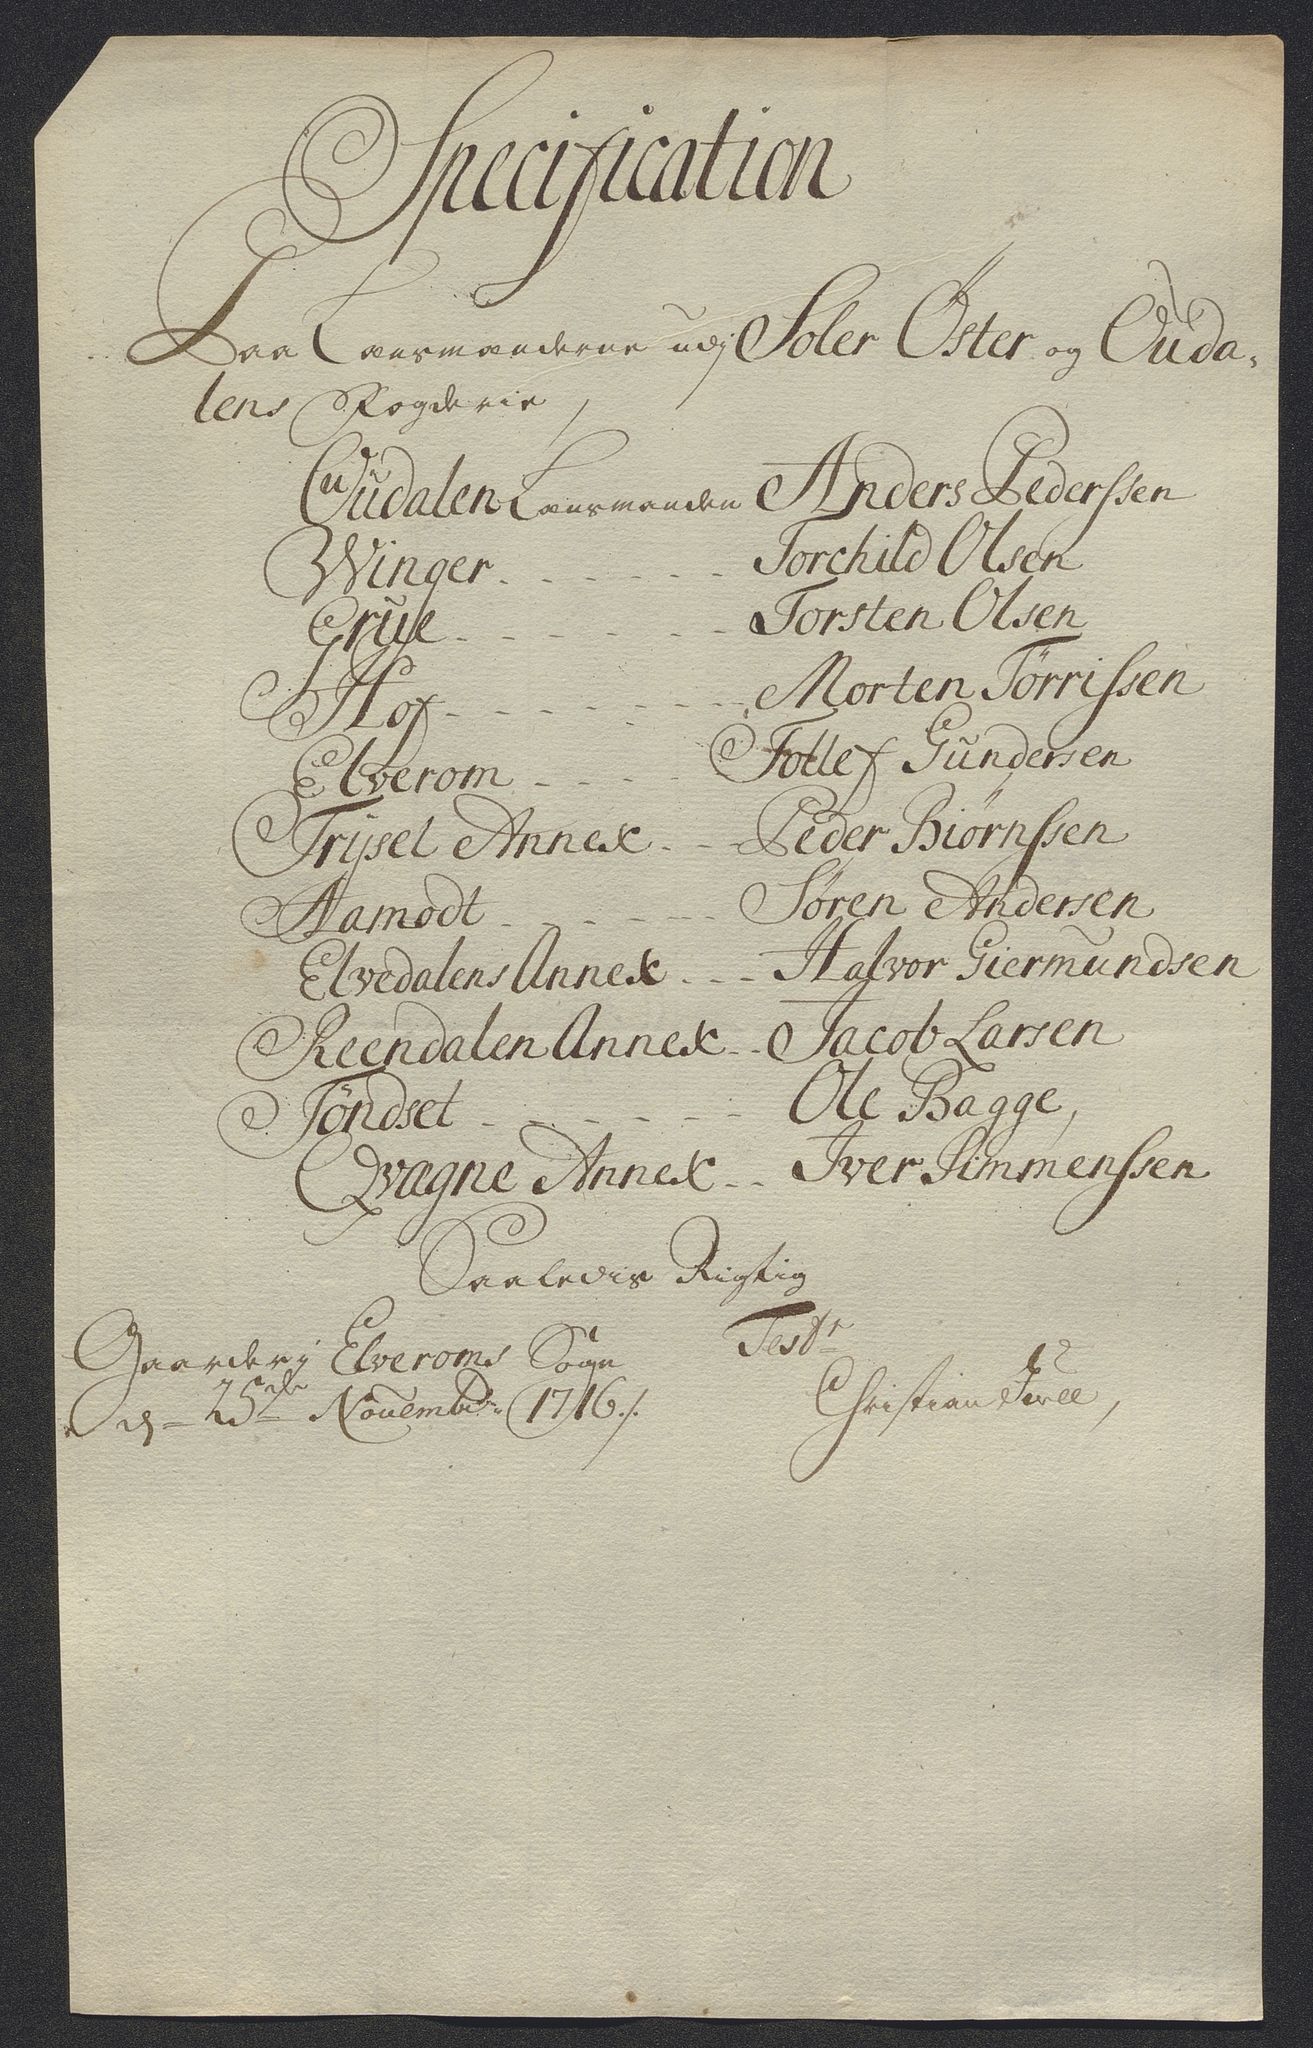 Specification
Paa Lensmænderne udj Soler Öster og Ouda-
lens Fogderie,
Oudalen Lensmanden Anders Pederssen
Winger - - - - - - Torchild Olsen
Grue - - - - - - - Torsten Olsen
Hof - - - - - - - - Morten Törrissen
Elverom - - - - Tollef Gundersen
Trysel Annex - - Peder Biörnssen
Aamodt - - - - - - Sören Andersen
Elvedalens Annex - - - Halvor Giermundsen
Reendalen Annex - - Jacob Larsen
Töndset - - - - - - - Ole Bagge,
Qvagne Annex - - Iver Simmenssen
Saaledis Rigtig
Gaarder i Elveroms Sogn Test
d 25de Novembr 1716 ./. Christian